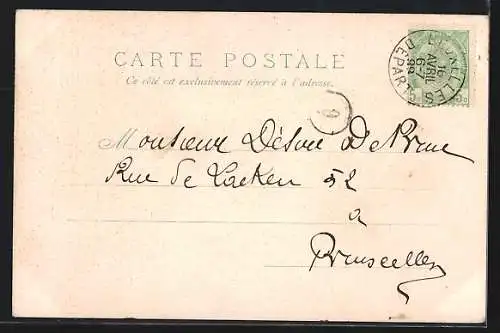 CARTE POSTALE
Ce côté est exclusivement réservé à l'adresse.
BRUXELLES
16
AVRIL
6
99
DEPART
9
Monsieur Désiré De Prine
Rue de Laeken 52
a
Bruxelles